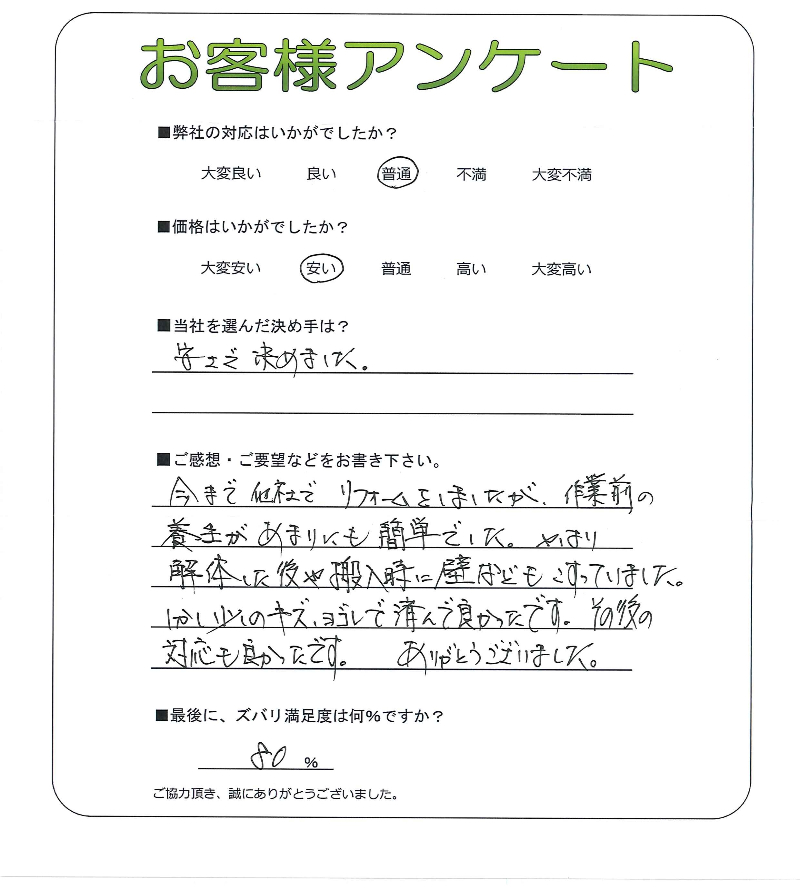 お客様アンケート
■弊社の対応はいかがでしたか？
大変良い 良い 普通 不満 大変不満
■価格はいかがでしたか？
大変安い 安い 普通 高い 大変高い
■当社を選んだ決め手は？
安さで 決めました。
■ご感想・ご要望などをお書き下さい。
今まで 他社で リフォームをしましたが、作業前の
養生が あまりにも 簡単でした。やはり
解体した後や搬入時に壁などもこすっていました。
少しのキズ、ヨゴレで済んで良かったです。その後の
対応も良かったです。 ありがとうございました。
■最後に、ズバリ満足度は何%ですか？
80 %
ご協力頂き、誠にありがとうございました。